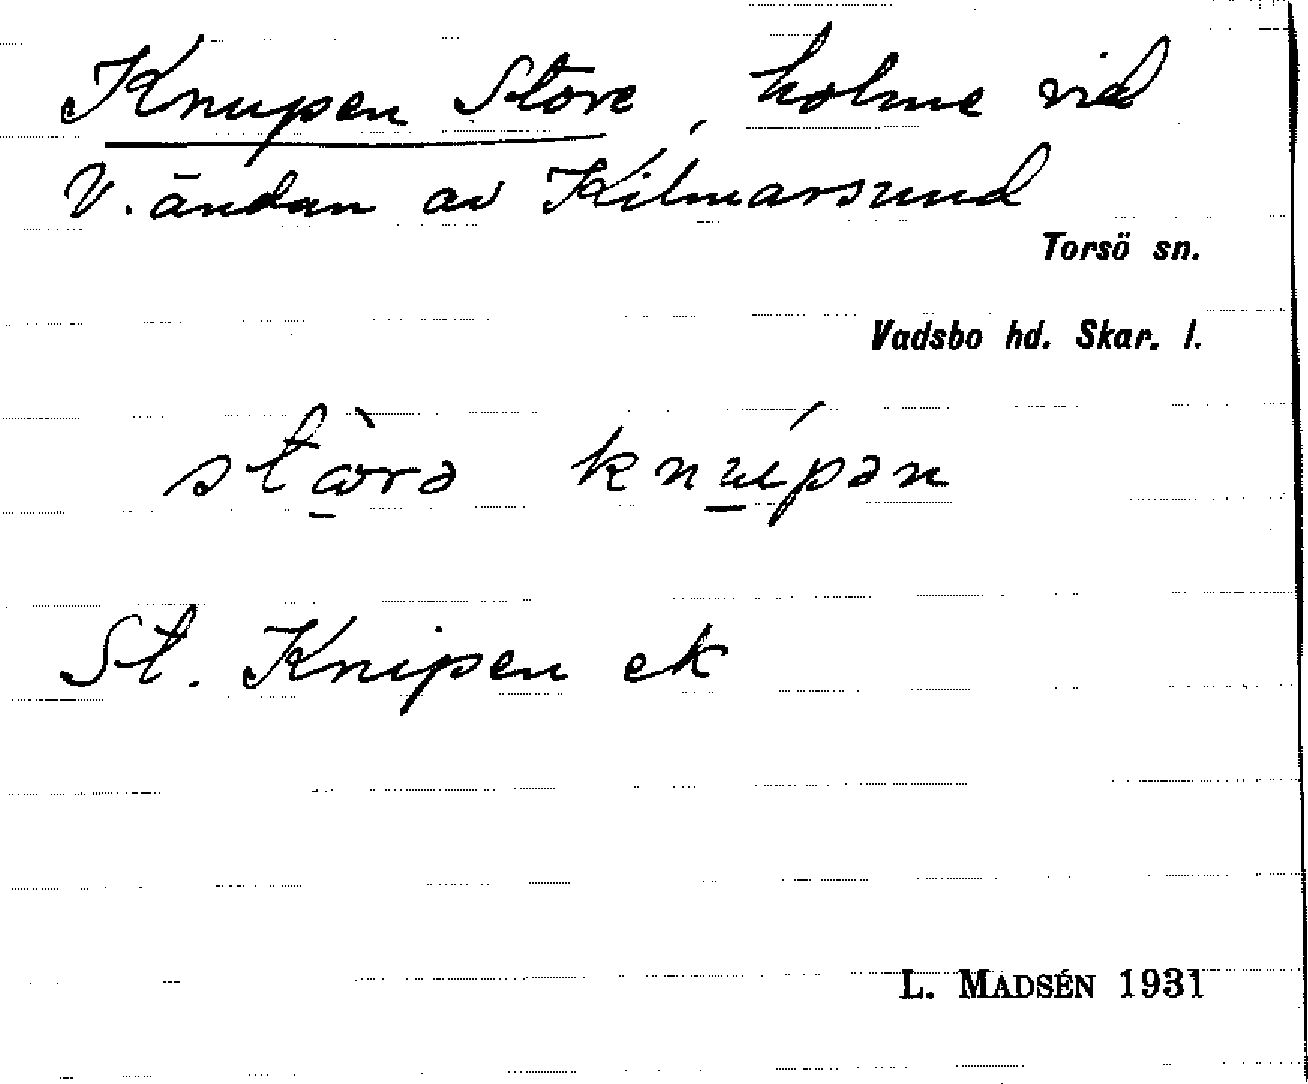 Knupen Store, holme vid
V. ändan av Kilmarsund
Torsö sn.
Vadsbo hd. Skar. l.
stòrə knúpən
St. Knipen ek
L. MADSÉN 1931